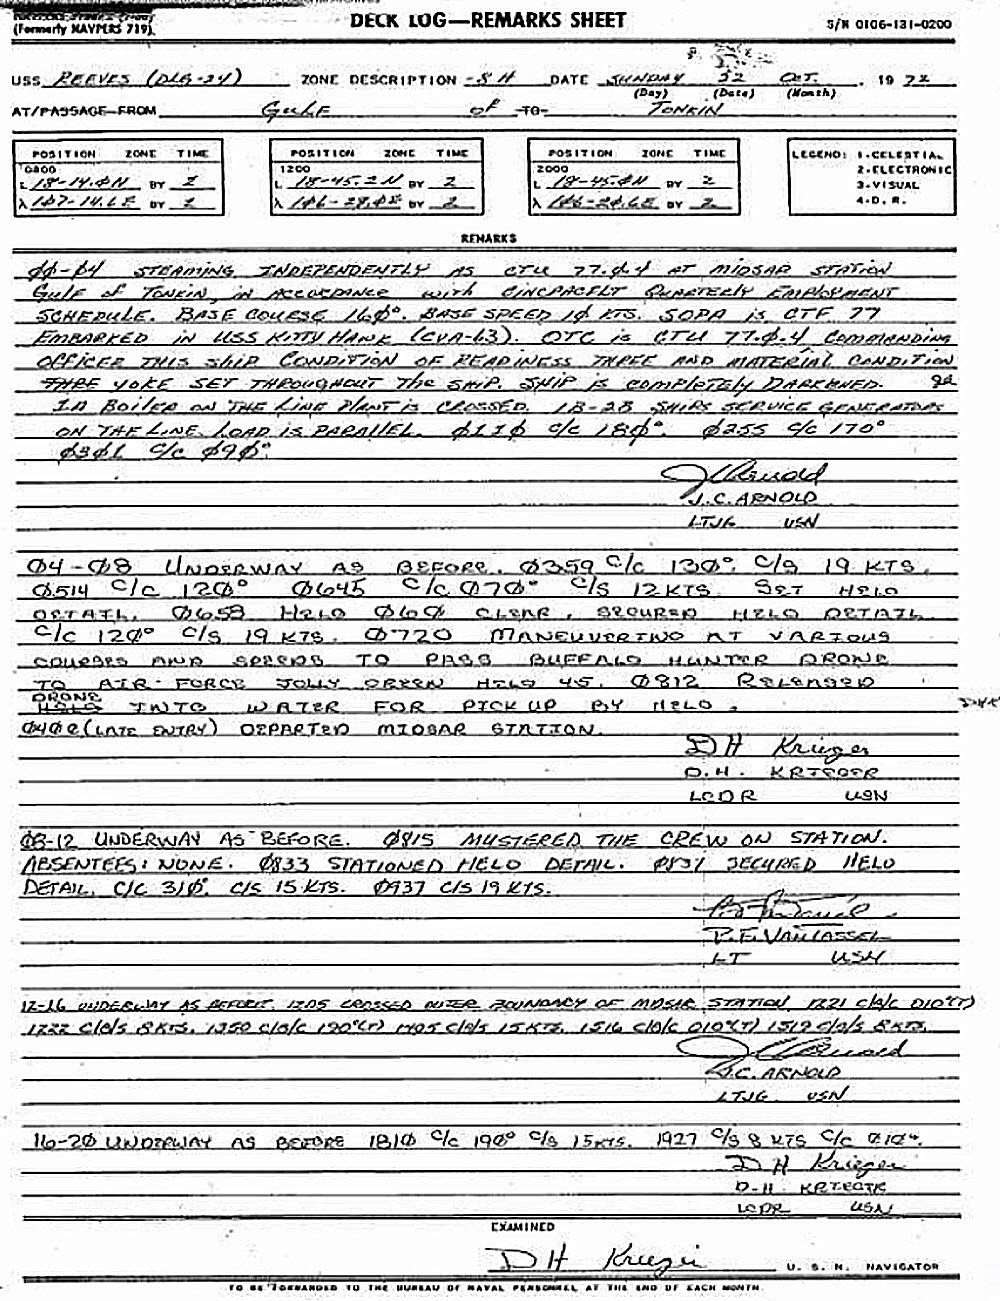 (Formerly NAVPERS 719)
DECK LOG—REMARKS SHEET
S/N 0106-131-0200
USS REEVES (DLG-24) ZONE DESCRIPTION -8 H DATE SUNDAY 22 OCT. 1972
(Day) (Date) (Month)
AT/PASSAGE FROM GULF OF TO TONKIN
POSITION ZONE TIME POSITION ZONE TIME POSITION ZONE TIME LEGEND: 1-CELESTIAL
0800 1200 2000 2-ELECTRONIC
L 18-14.0N BY 2 L 18-45.2N BY 2 L 18-45.0N BY 2 3-VISUAL
λ 107-14.6E BY 2 λ 106-28.0E BY 2 λ 106-20.6E BY 2 4-D. R.
REMARKS
00-04 STEAMING INDEPENDENTLY AS CTU 77.0.4 AT MIDSAR STATION
GULF OF TONKIN, IN ACCORDANCE WITH CINCPACFLT QUARTERLY EMPLOYMENT
SCHEDULE. BASE COURSE 160°. BASE SPEED 10 KTS. SOPA IS CTF 77
EMBARKED IN USS KITTY HAWK (CVA-63). OTC IS CTU 77.0.4 COMMANDING
OFFICER THIS SHIP CONDITION OF READINESS THREE AND MATERIAL CONDITION
YOKE SET THROUGHOUT THE SHIP. SHIP IS COMPLETELY DARKENED.
1A BOILER ON THE LINE PLANT IS CROSSED. 1B-2B SHIPS SERVICE GENERATORS
ON THE LINE. LOAD IS PARALLEL. 0110 C/C 180°. 0255 C/C 170°
0301 C/C 090°.
J C Arnold
J.C. ARNOLD
LTJG USN
04-08 UNDERWAY AS BEFORE. 0359 C/C 130°. C/S 19 KTS.
0514 C/C 120° 0645 C/C 070° C/S 12 KTS. SET HELO
DETAIL. 0653 HELO CLEAR. SECURED HELO DETAIL
C/C 120° C/S 19 KTS. 0720 MANEUVERING AT VARIOUS
COURSES AND SPEEDS TO PASS BUFFALO HUNTER DRONE
TO AIR FORCE JOLLY GREEN HELO 45. 0812 RELEASED
DRONE
HELO INTO WATER FOR PICK UP BY HELO.
(LATE ENTRY) DEPARTED MIDSAR STATION.
D H Krieger
D.H. KRIEGER
LCDR USN
08-12 UNDERWAY AS BEFORE. 0815 MUSTERED THE CREW ON STATION.
ABSENTEES: NONE. 0833 STATIONED HELO DETAIL. 0837 SECURED HELO
DETAIL. C/C 310°. C/S 15 KTS. 0937 C/S 19 KTS.
LT USN
12-16 UNDERWAY AS BEFORE. 1205 CROSSED OUTER BOUNDARY OF STATION 1221 C/B/C 010°(T)
1222 C/B/S 8 KTS. 1350 C/B/C 190°(T) 1405 C/B/S 15 KTS. 1516 C/B/C 010°(T) 1519 C/B/S 8 KTS.
J C Arnold
J.C. ARNOLD
LTJG USN
16-20 UNDERWAY AS BEFORE 1810 C/C 190° C/S 15 KTS. 1927 C/S 8 KTS C/C 010°.
D H Krieger
D.H. KRIEGER
LCDR USN
EXAMINED
D H Krieger
U. S. N. NAVIGATOR
TO BE FORWARDED TO THE BUREAU OF NAVAL PERSONNEL AT THE END OF EACH MONTH